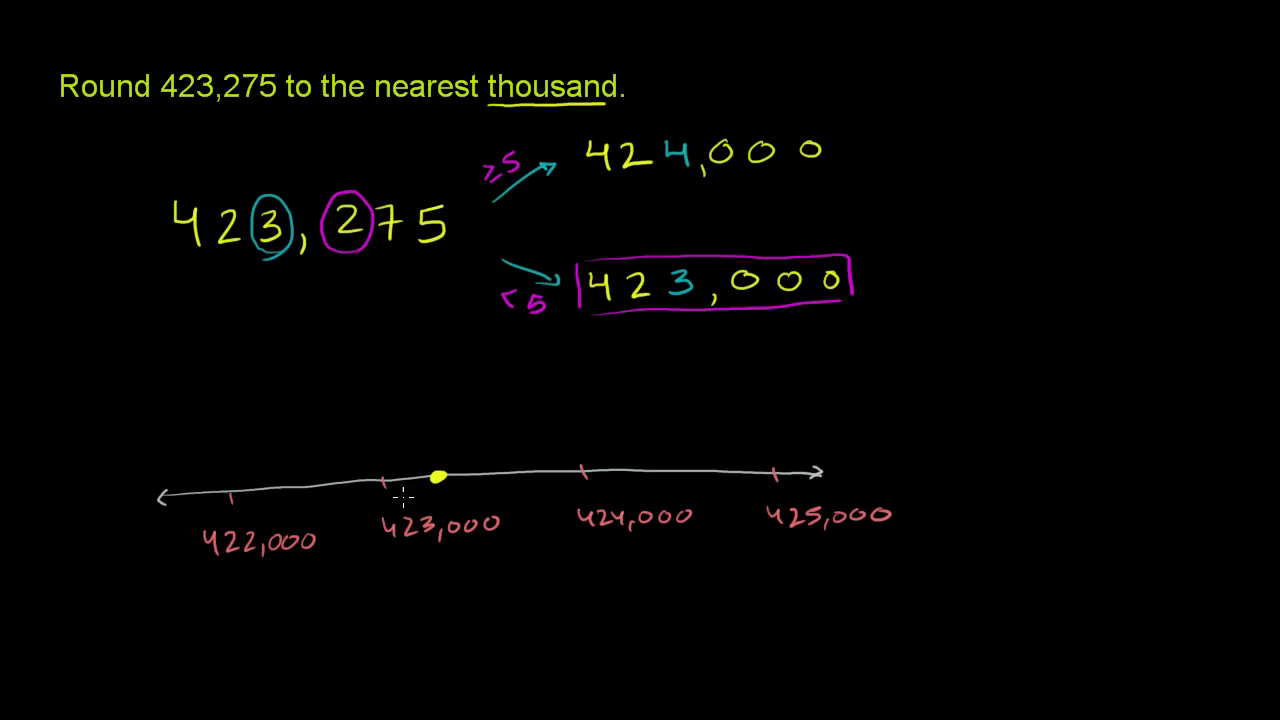 Round 423,275 to the nearest thousand.
≥5 424,000
423,275
<5 423,000
422,000 423,000 424,000 425,000